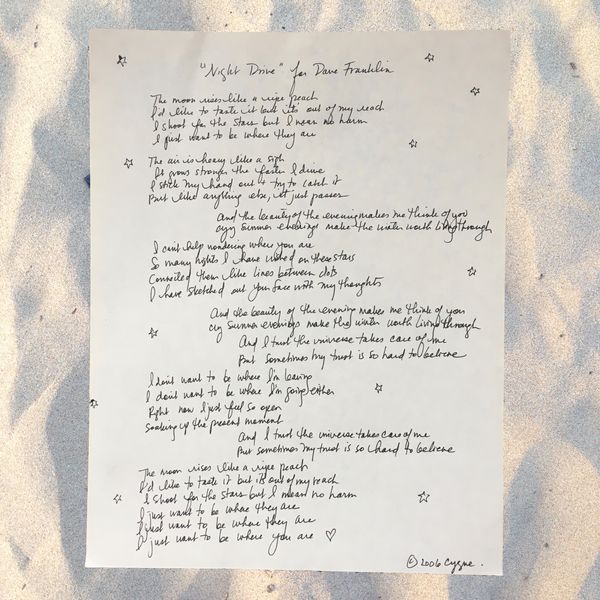 "Night Drive" for Dave Franklin
The moon rises like a ripe peach
I'd like to taste it but its out of my reach
I shoot for the stars but I mean no harm
I just want to be where they are
The air is heavy like a sigh
It grows stronger the faster I drive
I stick my hand out + try to catch it
But like anything else, it just passes
And the beauty of the evening makes me think of you
cuz summer evenings make the winter worth living through
I can't help wondering where you are
So many nights I have wished on these stars
Connected them like lines between dots
I have sketched out your face with my thoughts
And the beauty of the evening makes me think of you
cuz summer evenings make the winter worth living through
And I trust the universe takes care of me
But sometimes my trust is so hard to believe
I don't want to be where I'm leaving
I don't want to be where I'm going either
Right now I just feel so open
soaking up the present moment
And I trust the universe takes care of me
But sometimes my trust is so hard to believe
The moon rises like a ripe peach
I'd like to taste it but its out of my reach
I shoot for the stars but I mean no harm
I just want to be where they are
I just want to be where they are
I just want to be where you are ♡
© 2006 Cygne.